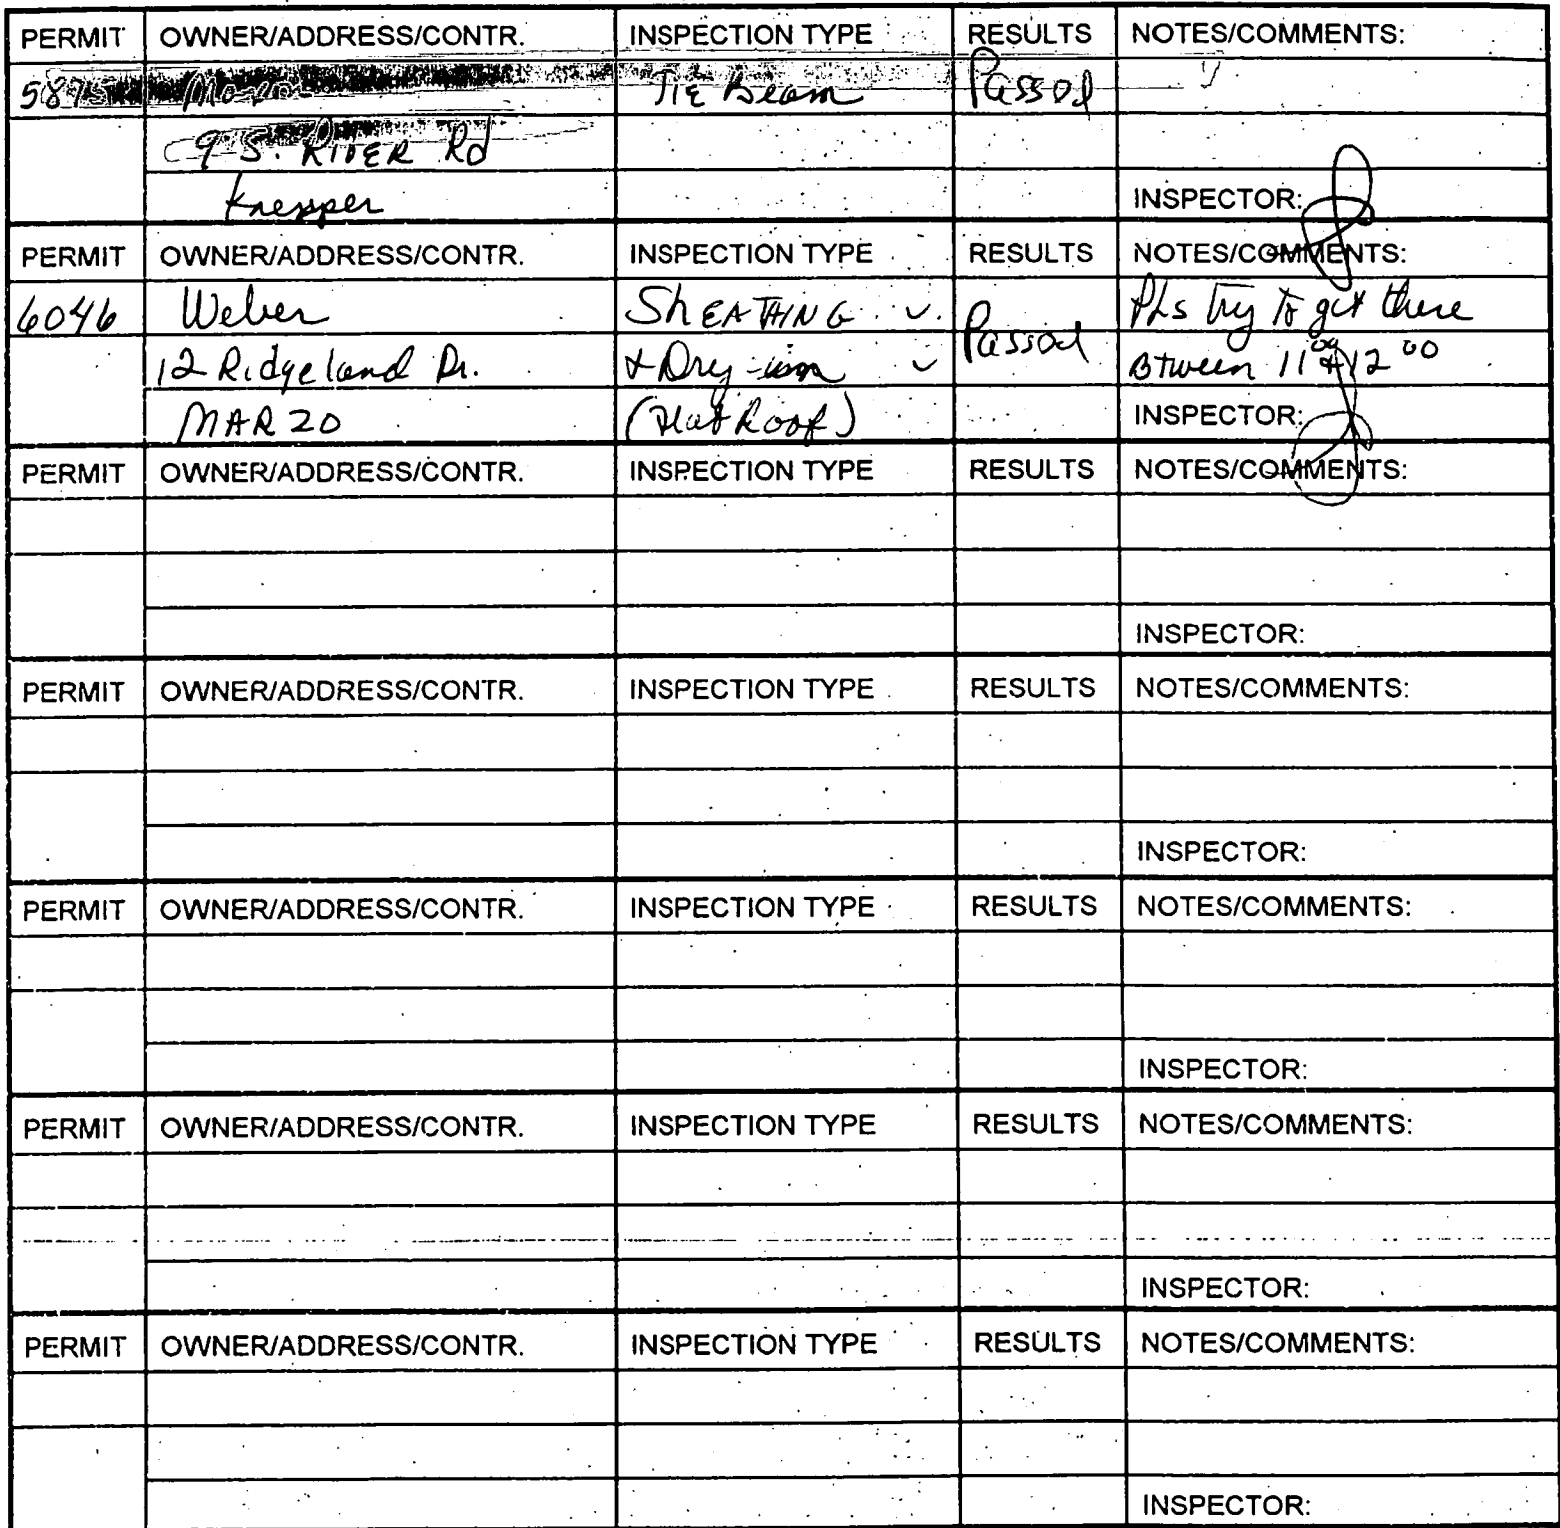 PERMIT OWNER/ADDRESS/CONTR. INSPECTION TYPE RESULTS NOTES/COMMENTS:
587 TIE Beam Passed
9 S. RIVER Rd
INSPECTOR:
PERMIT OWNER/ADDRESS/CONTR. INSPECTION TYPE RESULTS NOTES/COMMENTS:
6046 Weber ShEATHING Passed Pls try to get there
12 Ridgeland Dr. + Dry-in Btween 11 00 & 12 00
MAR 20 (Flat Roof) INSPECTOR:
PERMIT OWNER/ADDRESS/CONTR. INSPECTION TYPE RESULTS NOTES/COMMENTS:
INSPECTOR:
PERMIT OWNER/ADDRESS/CONTR. INSPECTION TYPE RESULTS NOTES/COMMENTS:
INSPECTOR:
PERMIT OWNER/ADDRESS/CONTR. INSPECTION TYPE RESULTS NOTES/COMMENTS:
INSPECTOR:
PERMIT OWNER/ADDRESS/CONTR. INSPECTION TYPE RESULTS NOTES/COMMENTS:
INSPECTOR:
PERMIT OWNER/ADDRESS/CONTR. INSPECTION TYPE RESULTS NOTES/COMMENTS:
INSPECTOR: